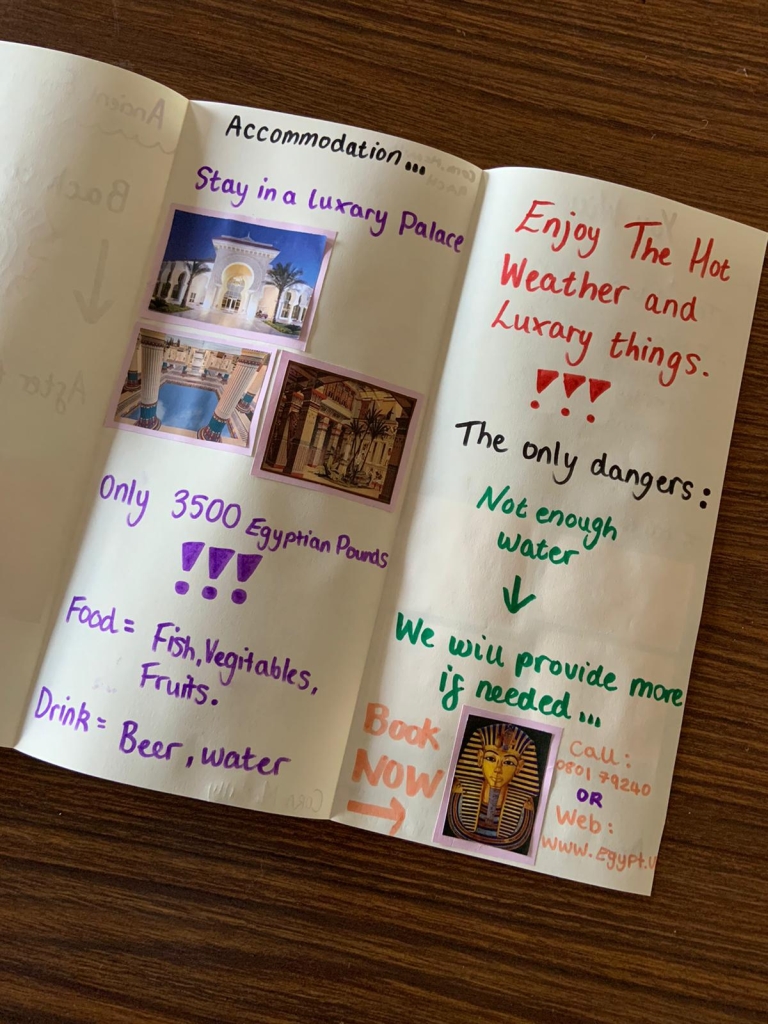 Accommodation...
Stay in a Luxary Palace
Only 3500 Egyptian Pounds
!!!
Food = Fish, Vegitables,
Fruits.
Drink = Beer, water
Enjoy The Hot
Weather and
Luxary things.
!!!
The only dangers:
Not enough
water
We will provide more
if needed...
Book
NOW
Call:
0801 79240
OR
Web:
www.Egypt.u